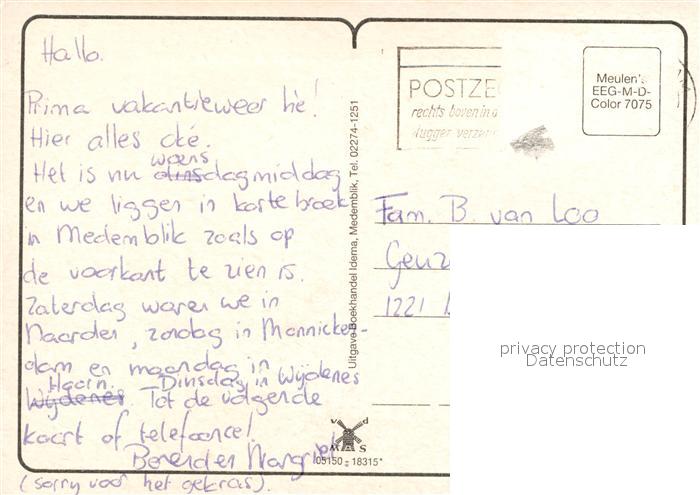 Hallo.
Prima vakantieweer hè!
Hier alles oké.
Het is nu woensdagmiddag
en we liggen in korte broek
in Medemblik zoals op
de voorkant te zien is.
Zaterdag waren we in
Naarden, zondag in Monnicken-
dam en maandag in
Hoorn. Dinsdag in Wijdenes
Wijdenes. Tot de volgende
kaart of telefoontje!
Berend en Margriet
(sorry voor het gekras).
Uitgave Boekhandel Idema, Medemblik, Tel. 02274-1251
POSTZE
rechts boven in d
vlugger verzen
Meulen's
EEG-M-D-
Color 7075
Fam. B. van Loo
Geuz
1221
privacy protection
Datenschutz
v d
M S
05150 = 18315*